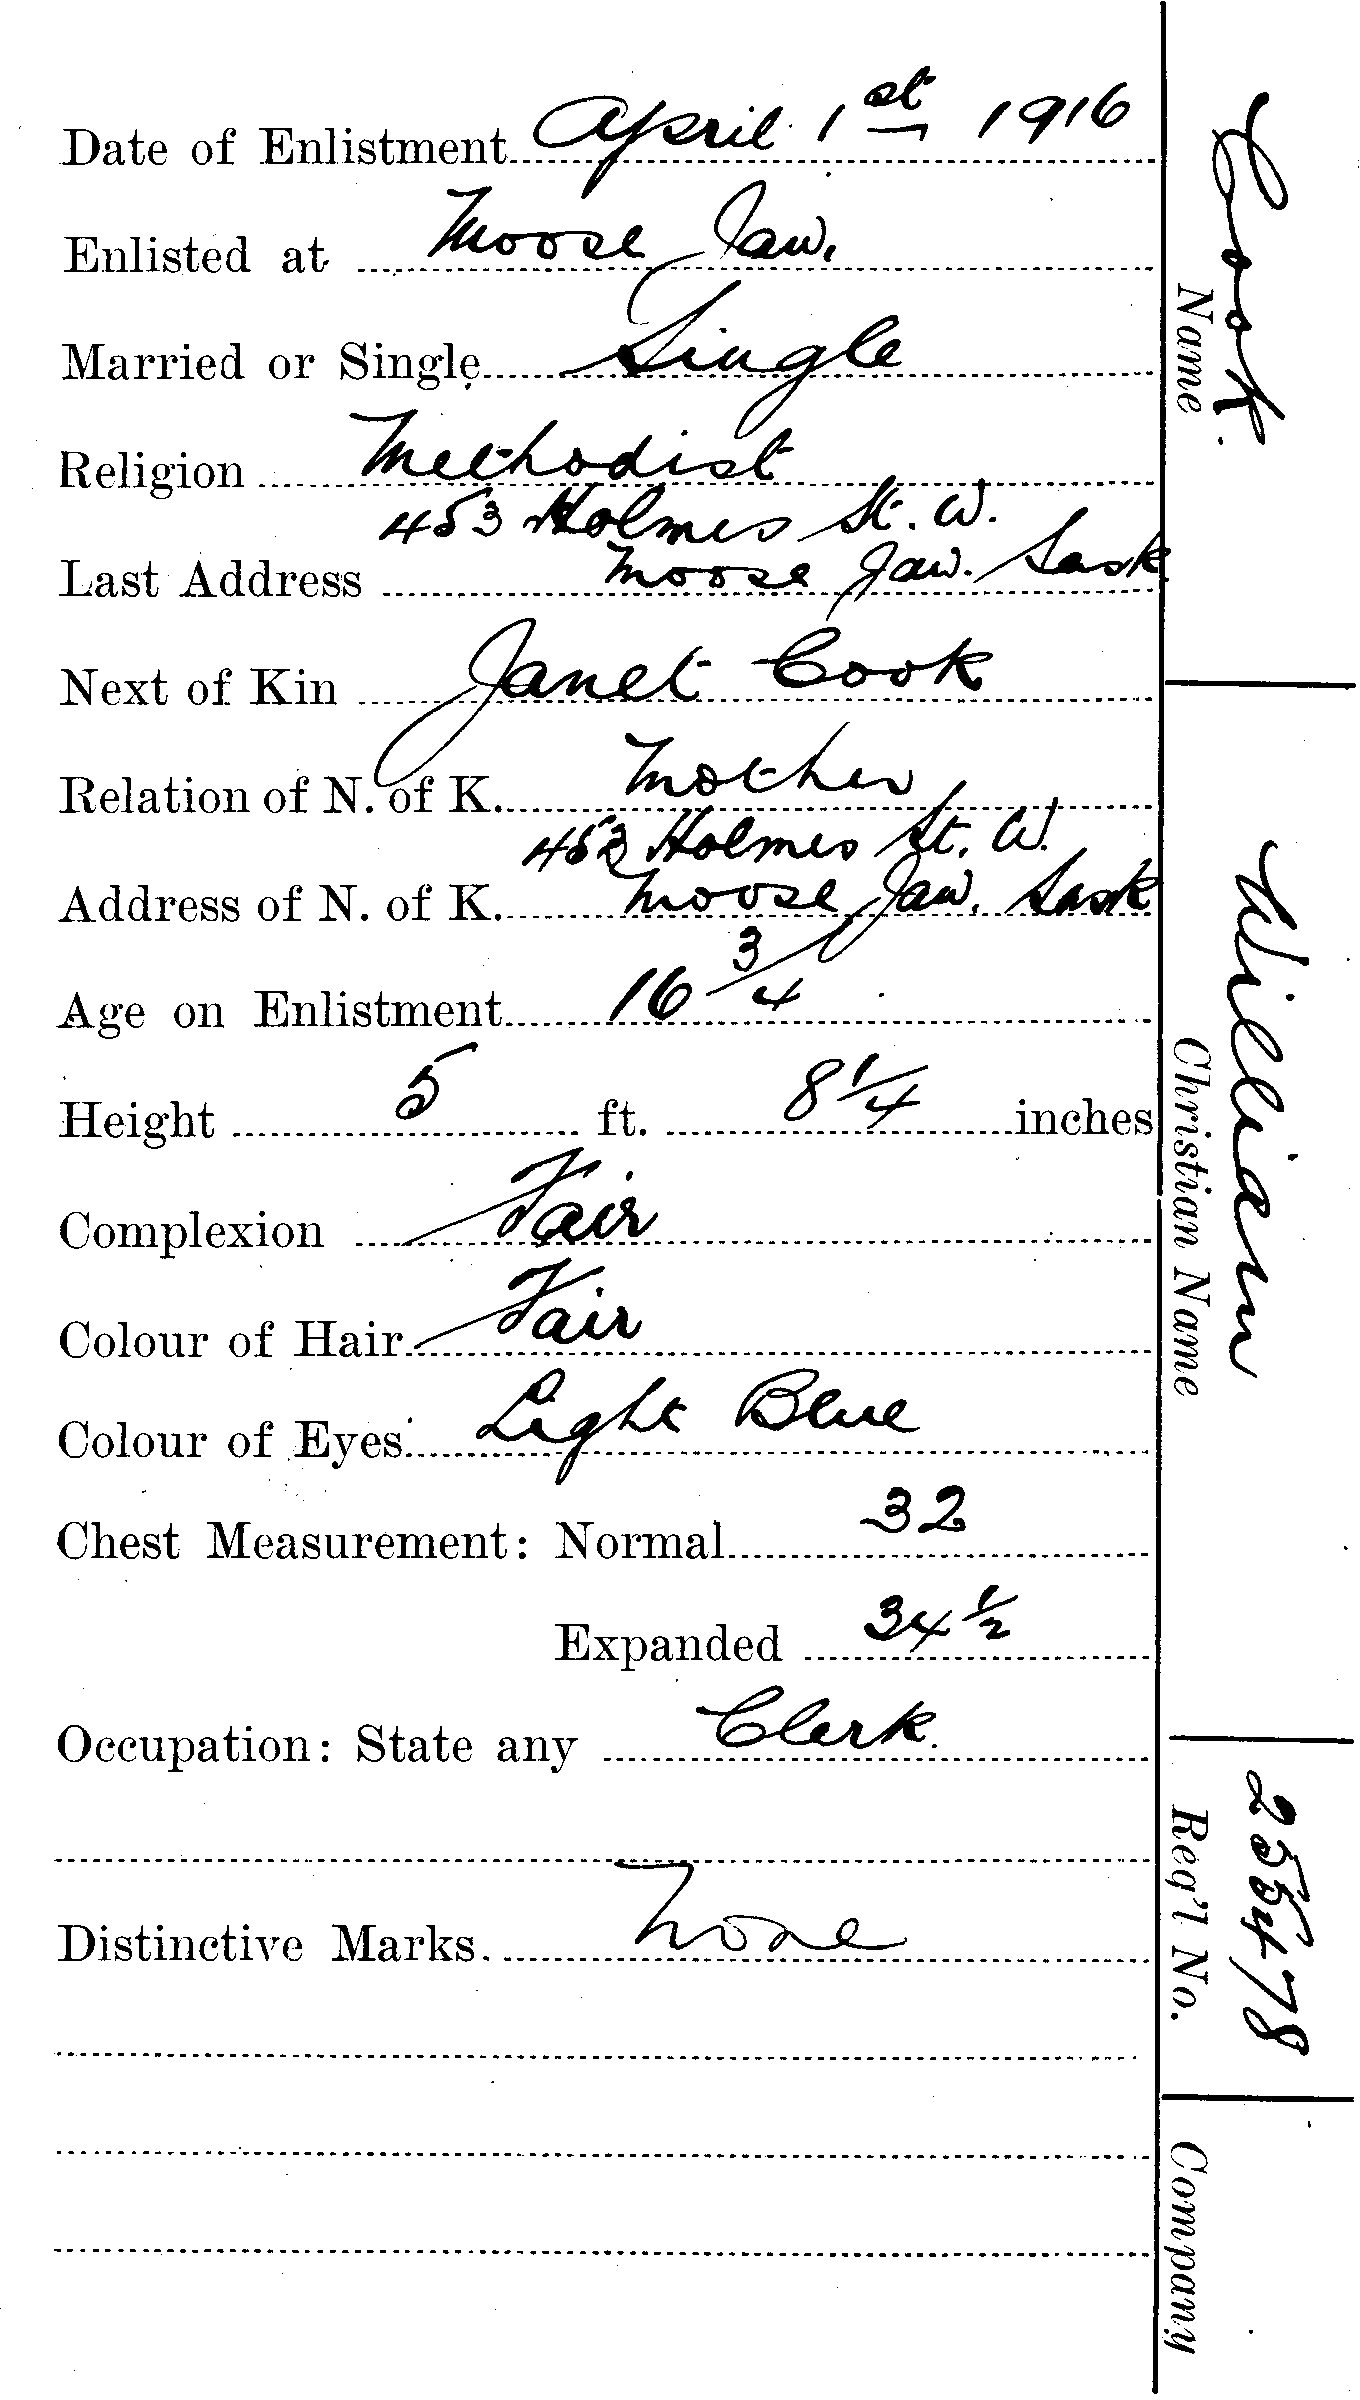 Date of Enlistment April 1st 1916
Enlisted at Moose Jaw.
Married or Single Single
Religion Methodist
453 Holmes St. W.
Last Address Moose Jaw. Sask
Next of Kin Janet Cook
Relation of N. of K. Mother
453 Holmes St. W.
Address of N. of K. Moose Jaw. Sask
Age on Enlistment 16 3/4
Height 5 ft. 8 1/4 inches
Complexion Fair
Colour of Hair Fair
Colour of Eyes Light Blue
Chest Measurement: Normal 32
Expanded 34 1/2
Occupation: State any Clerk.
Distinctive Marks. None
Cook.
Name
William
Christian Name
255478
Req'l No.
Company